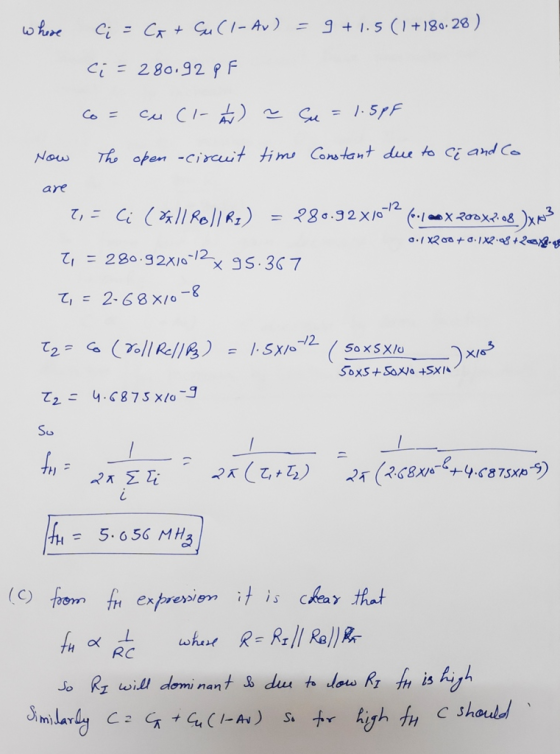 where Ci = Cπ + Cu (1-Av) = 9 + 1.5 (1+180.28)
Ci = 280.92 pF
Co = Cu (1 - 1/Av) ≃ Cu = 1.5pF
Now The open-circuit time Constant due to Ci and Co
are
τ1 = Ci (rπ||RB||RI) = 280.92×10^-12 (0.1×200×2.08 / 0.1×200+0.1×2.08+200×2.08)×10^3
τ1 = 280.92×10^-12 × 95.367
τ1 = 2.68×10^-8
τ2 = Co (ro||Rc||R3) = 1.5×10^-12 (50×5×10 / 50×5+50×10+5×10)×10^3
τ2 = 4.6875×10^-9
So
fH = 1 / 2π Σi τi = 1 / 2π (τ1+τ2) = 1 / 2π (2.68×10^-8+4.6875×10^-9)
fH = 5.056 MHz
(C) from fH expression it is clear that
fH ∝ 1/RC where R = RI||RB||Rπ
so RI will dominant & due to low RI fH is high
Similarly C = Cπ + Cu (1-Av) so for high fH C should